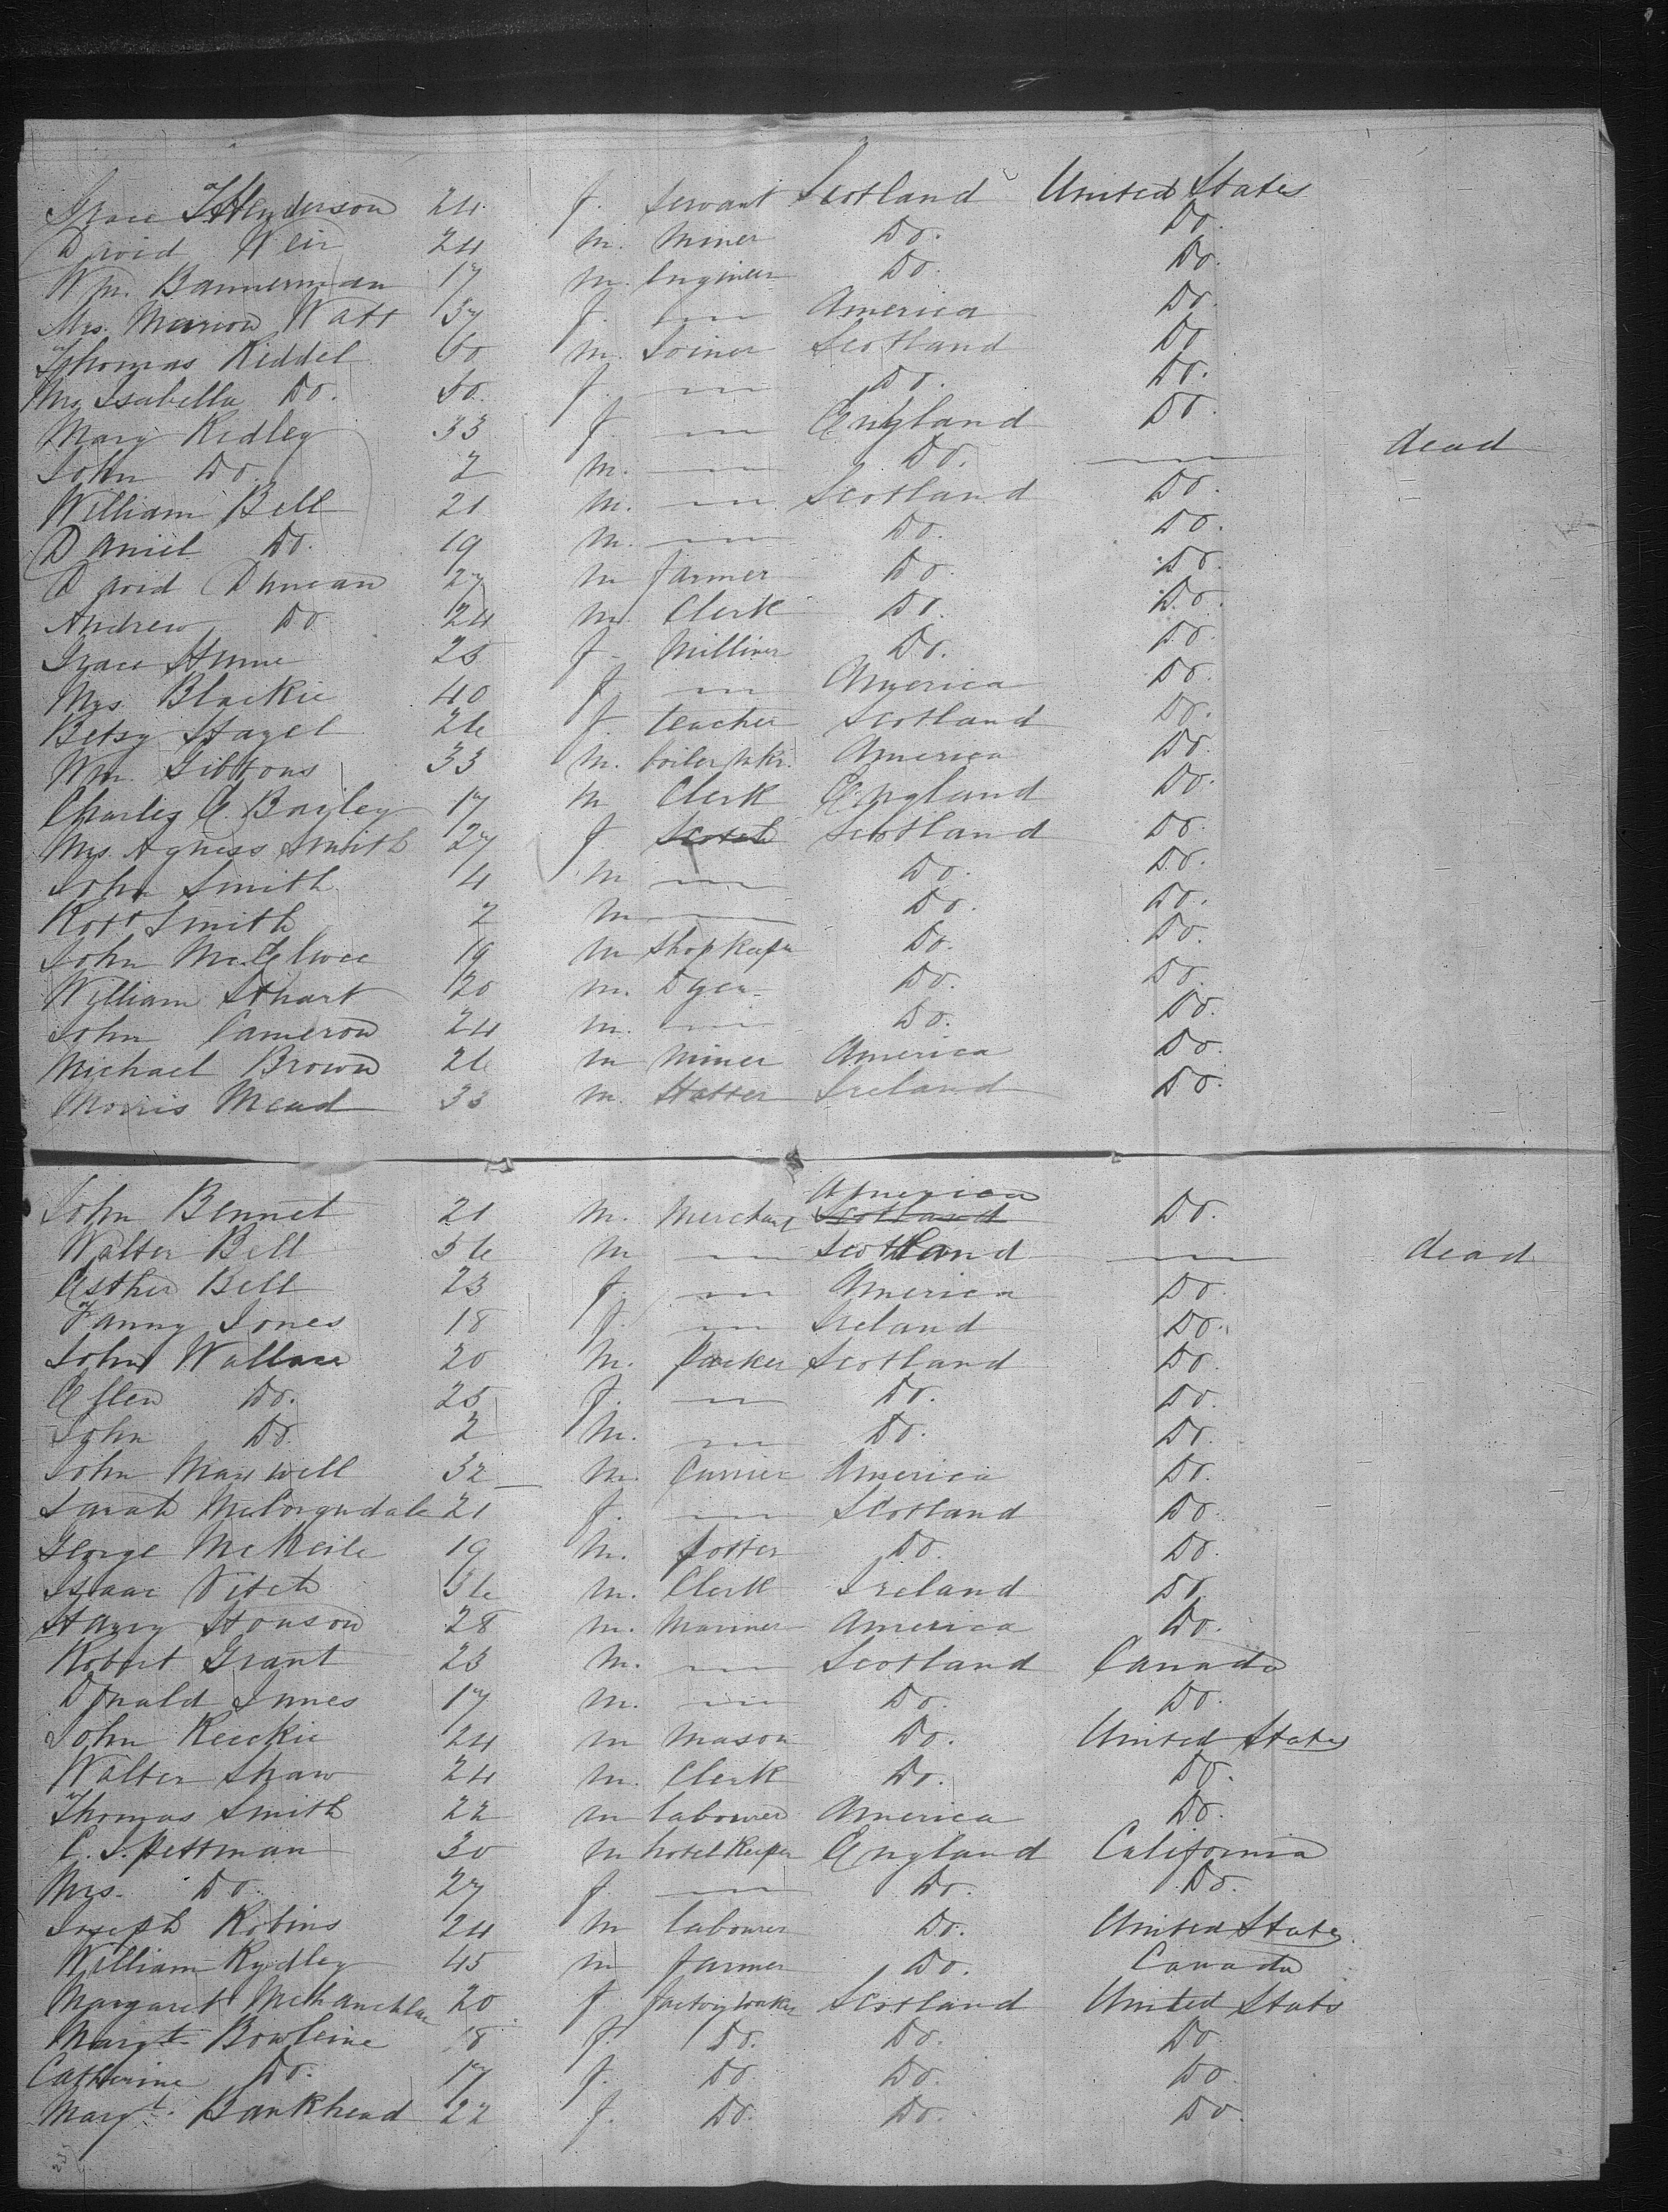 Grace Henderson 24 f. Servant Scotland United States
David Weir 24 m. Miner Do. Do.
Wm. Bannerman 17 m. Engineer Do. Do.
Mrs. Marion Watt 37 f. — America Do.
Thomas Riddel 50 m. Joiner Scotland Do
Mrs Isabella Do. 50. f. — Do. Do.
Mary Ridley 33 f. — England Do.
John Do. 2 m. — Do. — dead
William Bell 21 m. — Scotland Do.
Daniel Do. 19 m. — Do. Do.
David Duncan 27 m farmer Do. Do.
Andrew Do 24 m. Clerk Do. Do.
Grace Hume 25 f. Milliner Do. Do.
Mrs. Blackie 40 f. — America Do.
Betsy Hazel 26 f. teacher Scotland Do.
Wm. Gibbons 33 m. boiler mkr. America Do.
Charles E. Bayley 17 m Clerk England Do.
Mrs. Agness Smith 27 f Scotch Scotland Do.
John Smith 4 m — Do. Do.
Robt Smith 2 m — Do. Do.
John McElwee 19 m Shop Keeper Do. Do.
William Sthart 20 m. Dyer Do. Do.
John Cameron 24 m. — Do. Do.
Michael Brown 26 m Miner America Do.
Morris Mead 33 m. Hatter Ireland Do.
America
John Bennet 21 m. Merchant Scotland Do.
Walter Bell 56 m — Scotland — dead
Esther Bell 23 f. — America Do.
Fanny Jones 18 f. — Ireland Do.
John Wallace 20 m. Packer Scotland Do.
Ellen Do. 25 f. — Do. Do.
John Do 2 m. — Do. Do.
John Maxwell 32 m. Currier America Do.
Sarah McCorqudale 21 f. — Scotland Do.
George McNeile 19 m. Potter Do. Do.
Isaac Vitch 36 m. Clerk Ireland Do.
Harry Honson 28 m. Mariner America Do.
Robert Grant 23 m. — Scotland Canada
Donald Innes 17 m. — Do. Do.
John Reickie 24 m Mason Do. United States
Walter Shaw 24 m. Clerk Do. Do.
Thomas Smith 22 m labourer America Do.
C. S. Pettman 30 m hotel Keeper England California
Mrs. Do. 27 f. — Do. Do.
Joseph Robins 24 m labourer Do. United States
William Rydley 45 m farmer Do. Canada
Margaret 20 f. factory worker Scotland United Stats
Margt Bowleine 18 f. Do. Do. Do.
Catherine Do. 17 f. Do Do. Do.
Margt. Bankhead 22 f. Do. Do. Do.